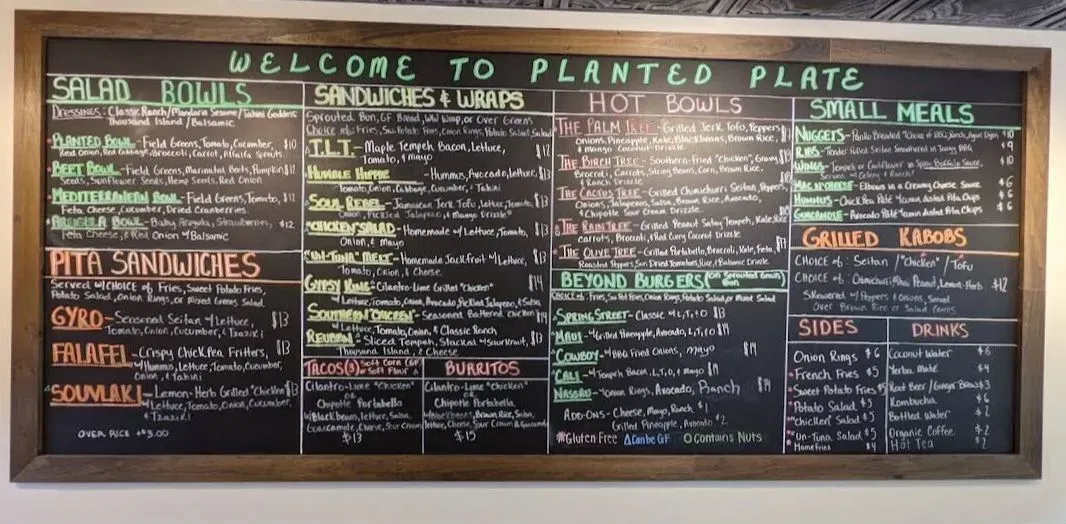 WELCOME TO PLANTED PLATE
SALAD BOWLS
Dressings: Classic Ranch/Mandarin Sesame/Tahini Goddess
Thousand Island/Balsamic
PLANTED BOWL- Field Greens, Tomato, Cucumber, $10
Red Onion, Red Cabbage, Broccoli, Carrot, Alfalfa Sprouts
BEET BOWL- Field Greens, Marinated Beets, Pumpkin $12
Seeds, Sunflower Seeds, Hemp Seeds, Red Onion
MEDITERRANEAN BOWL- Field Greens, Tomato, $11
Feta Cheese, Cucumber, Dried Cranberries
ARUGULA BOWL- Baby Arugula, Strawberries, $12
Feta Cheese, & Red Onion w/Balsamic
PITA SANDWICHES
Served w/choice of: Fries, Sweet Potato Fries,
Potato Salad, Onion Rings, or Mixed Greens Salad
GYRO- Seasoned Seitan w/Lettuce, $13
Tomato, Onion, Cucumber, & Tzaziki
FALAFEL- Crispy Chickpea Fritters, $13
w/Hummus, Lettuce, Tomato, Cucumber,
Onion, & Tahini
SOUVLAKI- Lemon-Herb Grilled "Chicken" $13
w/Lettuce, Tomato, Onion, Cucumber,
& Tzaziki
OVER RICE +$3.00
SANDWICHES & WRAPS
Sprouted Bun, GF Bread, WW Wrap, or Over Greens
Choice of: Fries, Sw. Potato Fries, Onion Rings, Potato Salad, Salad
T.L.T.- Maple Tempeh Bacon, Lettuce, $12
Tomato, & Mayo
HUMBLE HIPPIE - Hummus, Avocado, Lettuce, $13
Tomato, Onion, Cabbage, Cucumber, & Tahini
SOUL REBEL- Jamaican Jerk Tofu, Lettuce, Tomato, $13
Onion, Pickled Jalapeno, & Mango Drizzle
"CHICKEN" SALAD- Homemade w/Lettuce, Tomato, $13
Onion, & Mayo
"UN-TUNA" MELT- Homemade Jackfruit w/Lettuce, $13
Tomato, Onion, & Cheese
GYPSY KING- Cilantro-Lime Grilled "Chicken" $14
w/Lettuce, Tomato, Onion, Avocado, Pickled Jalapeno, & Salsa
SOUTHERN "CHICKEN"- Seasoned Battered Chicken $14
w/Lettuce, Tomato, Onion, & Classic Ranch
REUBEN- Sliced Tempeh, Stacked w/Saurkraut, $13
Thousand Island, & Cheese
TACOS(3) Soft Corn (GF)
Soft Flour
Cilantro-Lime "Chicken"
OR
Chipotle Portabella
w/Black beans, Lettuce, Salsa,
Guacamole, Cheese, Sour Cream
$13
BURRITOS
Cilantro-Lime "Chicken"
OR
Chipotle Portabella
w/Black beans, Brown Rice, Salsa,
Lettuce, Cheese, Sour Cream & Guacamole
$15
HOT BOWLS
THE PALM TREE- Grilled Jerk Tofu, Peppers,
Onions, Pineapple, Kale, Blackbeans, Brown Rice,
& Mango Coconut Drizzle
THE BIRCH TREE- Southern-Fried "Chicken", Greens,
Broccoli, Carrots, String Beans, Corn, Brown Rice,
& Ranch Drizzle
THE CACTUS TREE- Grilled Chimichurri Seitan, Peppers,
Onions, Jalapenos, Salsa, Brown Rice, Avocado,
& Chipotle Sour Cream Drizzle
THE RAIN TREE- Grilled Peanut Satay Tempeh, Kale, Rice
Carrots, Broccoli, & Red Curry Coconut Drizzle
THE OLIVE TREE- Grilled Portabello, Broccoli, Kale, Feta,
Roasted Peppers, Sun Dried Tomatoes, Rice, & Balsamic Drizzle
BEYOND BURGERS (on Sprouted Grain Bun)
Choice of: Fries, Sw. Pot Fries, Onion Rings, Potato Salad, or Mixed Salad
SPRING STREET- Classic w/L,T,&O $13
MAUI- w/Grilled Pineapple, Avocado, L,T,&O $14
COWBOY- w/BBQ Fried Onions, Mayo $14
CALI- w/Tempeh Bacon, L,T,O, & Mayo
NASSAU- w/Onion Rings, Avocado, Ranch $14
ADD-ONS- Cheese, Mayo, Ranch $1
Grilled Pineapple, Avocado $2
*Gluten Free ΔCan be GF OContains Nuts
SMALL MEALS
NUGGETS- Panko Breaded $10
RIBS- Seitan Smothered in Tangy BBQ $9
WINGS- Tempeh or Cauliflower in Spicy Buffalo Sauce, $10
Served w/Celery & Ranch
MAC N' CHEESE- Elbows in a Creamy Cheese Sauce $6
HUMMUS- Chick Pea Paté w/Lemon dusted Pita Chips $6
GUACAMOLE- Avocado Paté w/Lemon dusted Pita Chips $6
GRILLED KABOBS
CHOICE of: Seitan / "Chicken" / Tofu
CHOICE of: Chimichurri, Thai Peanut, Lemon-Herb $12
Skewered w/Peppers & Onions, Served
Over Brown Rice or Salad Greens
SIDES
Onion Rings $6
*French Fries $5
*Sweet Potato Fries $5
*Potato Salad $5
*"Chicken" Salad $5
*"Un-Tuna" Salad $5
*Home Fries $4
DRINKS
Coconut Water $6
Yerba Mate $4
Root Beer/Ginger Brew $3
Kombucha $6
Bottled Water $2
Organic Coffee $2
Hot Tea $2